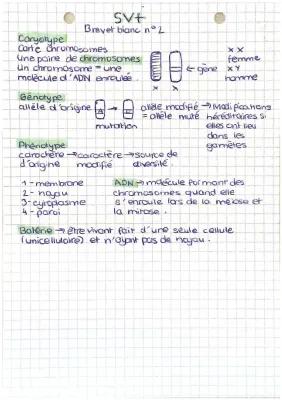 SVT
Brevet blanc n°2
Caryotype
Carte chromosomes
Une paire de chromosomes
Un chromosome = une
molécule d'ADN enroulée.
x x
← gène
XX
femme
XY
homme
Génotype
allèle d'origine A → A allèle modifié → Modifications
= allèle muté héréditaires si
mutation elles ont lieu
dans les
gamètes.
Phénotype
caractère → caractère → source de
d'origine modifié diversité.
1 - membrane
2 - noyau
3 - cytoplasme
4 - paroi
ADN → molécule formant des
chromosomes quand elle
s'enroule lors de la méiose et
la mitose.
Batérie → être vivant fait d'une seule cellule
(unicellulaire) et n'ayant pas de noyau.